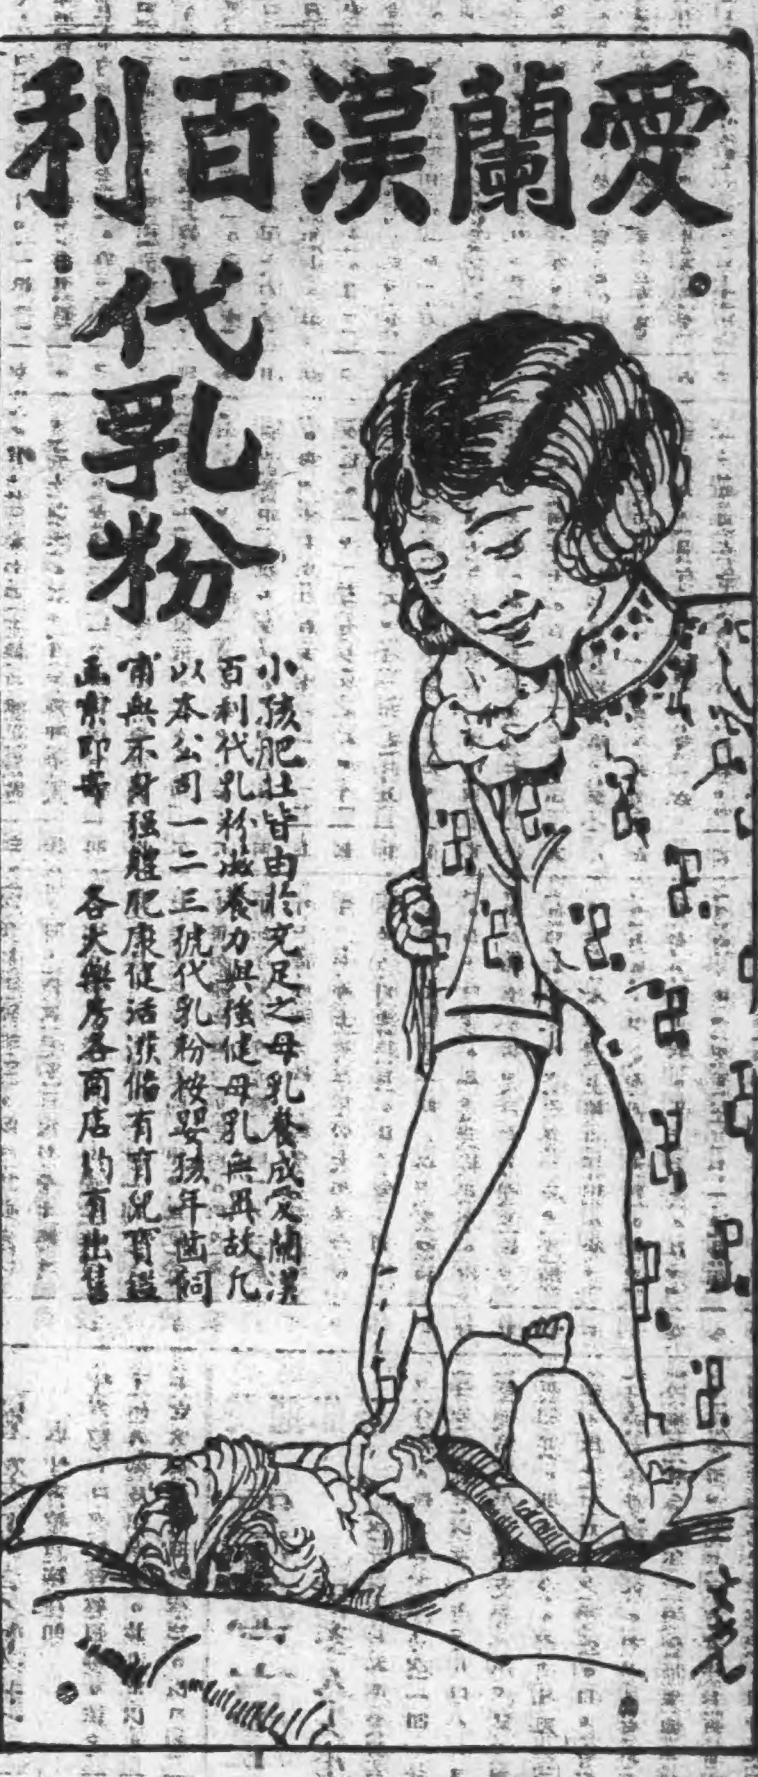 愛蘭漢百利
代乳粉
小孩肥壯皆由於充足之母乳養成愛蘭漢
百利代乳粉滋養力與強健母乳無異故凡
以本公司一二三號代乳粉按嬰孩年齒飼
哺無不身强體肥康健活潑備有育兒寶鑑
函索即寄 各大藥房各商店均有出售